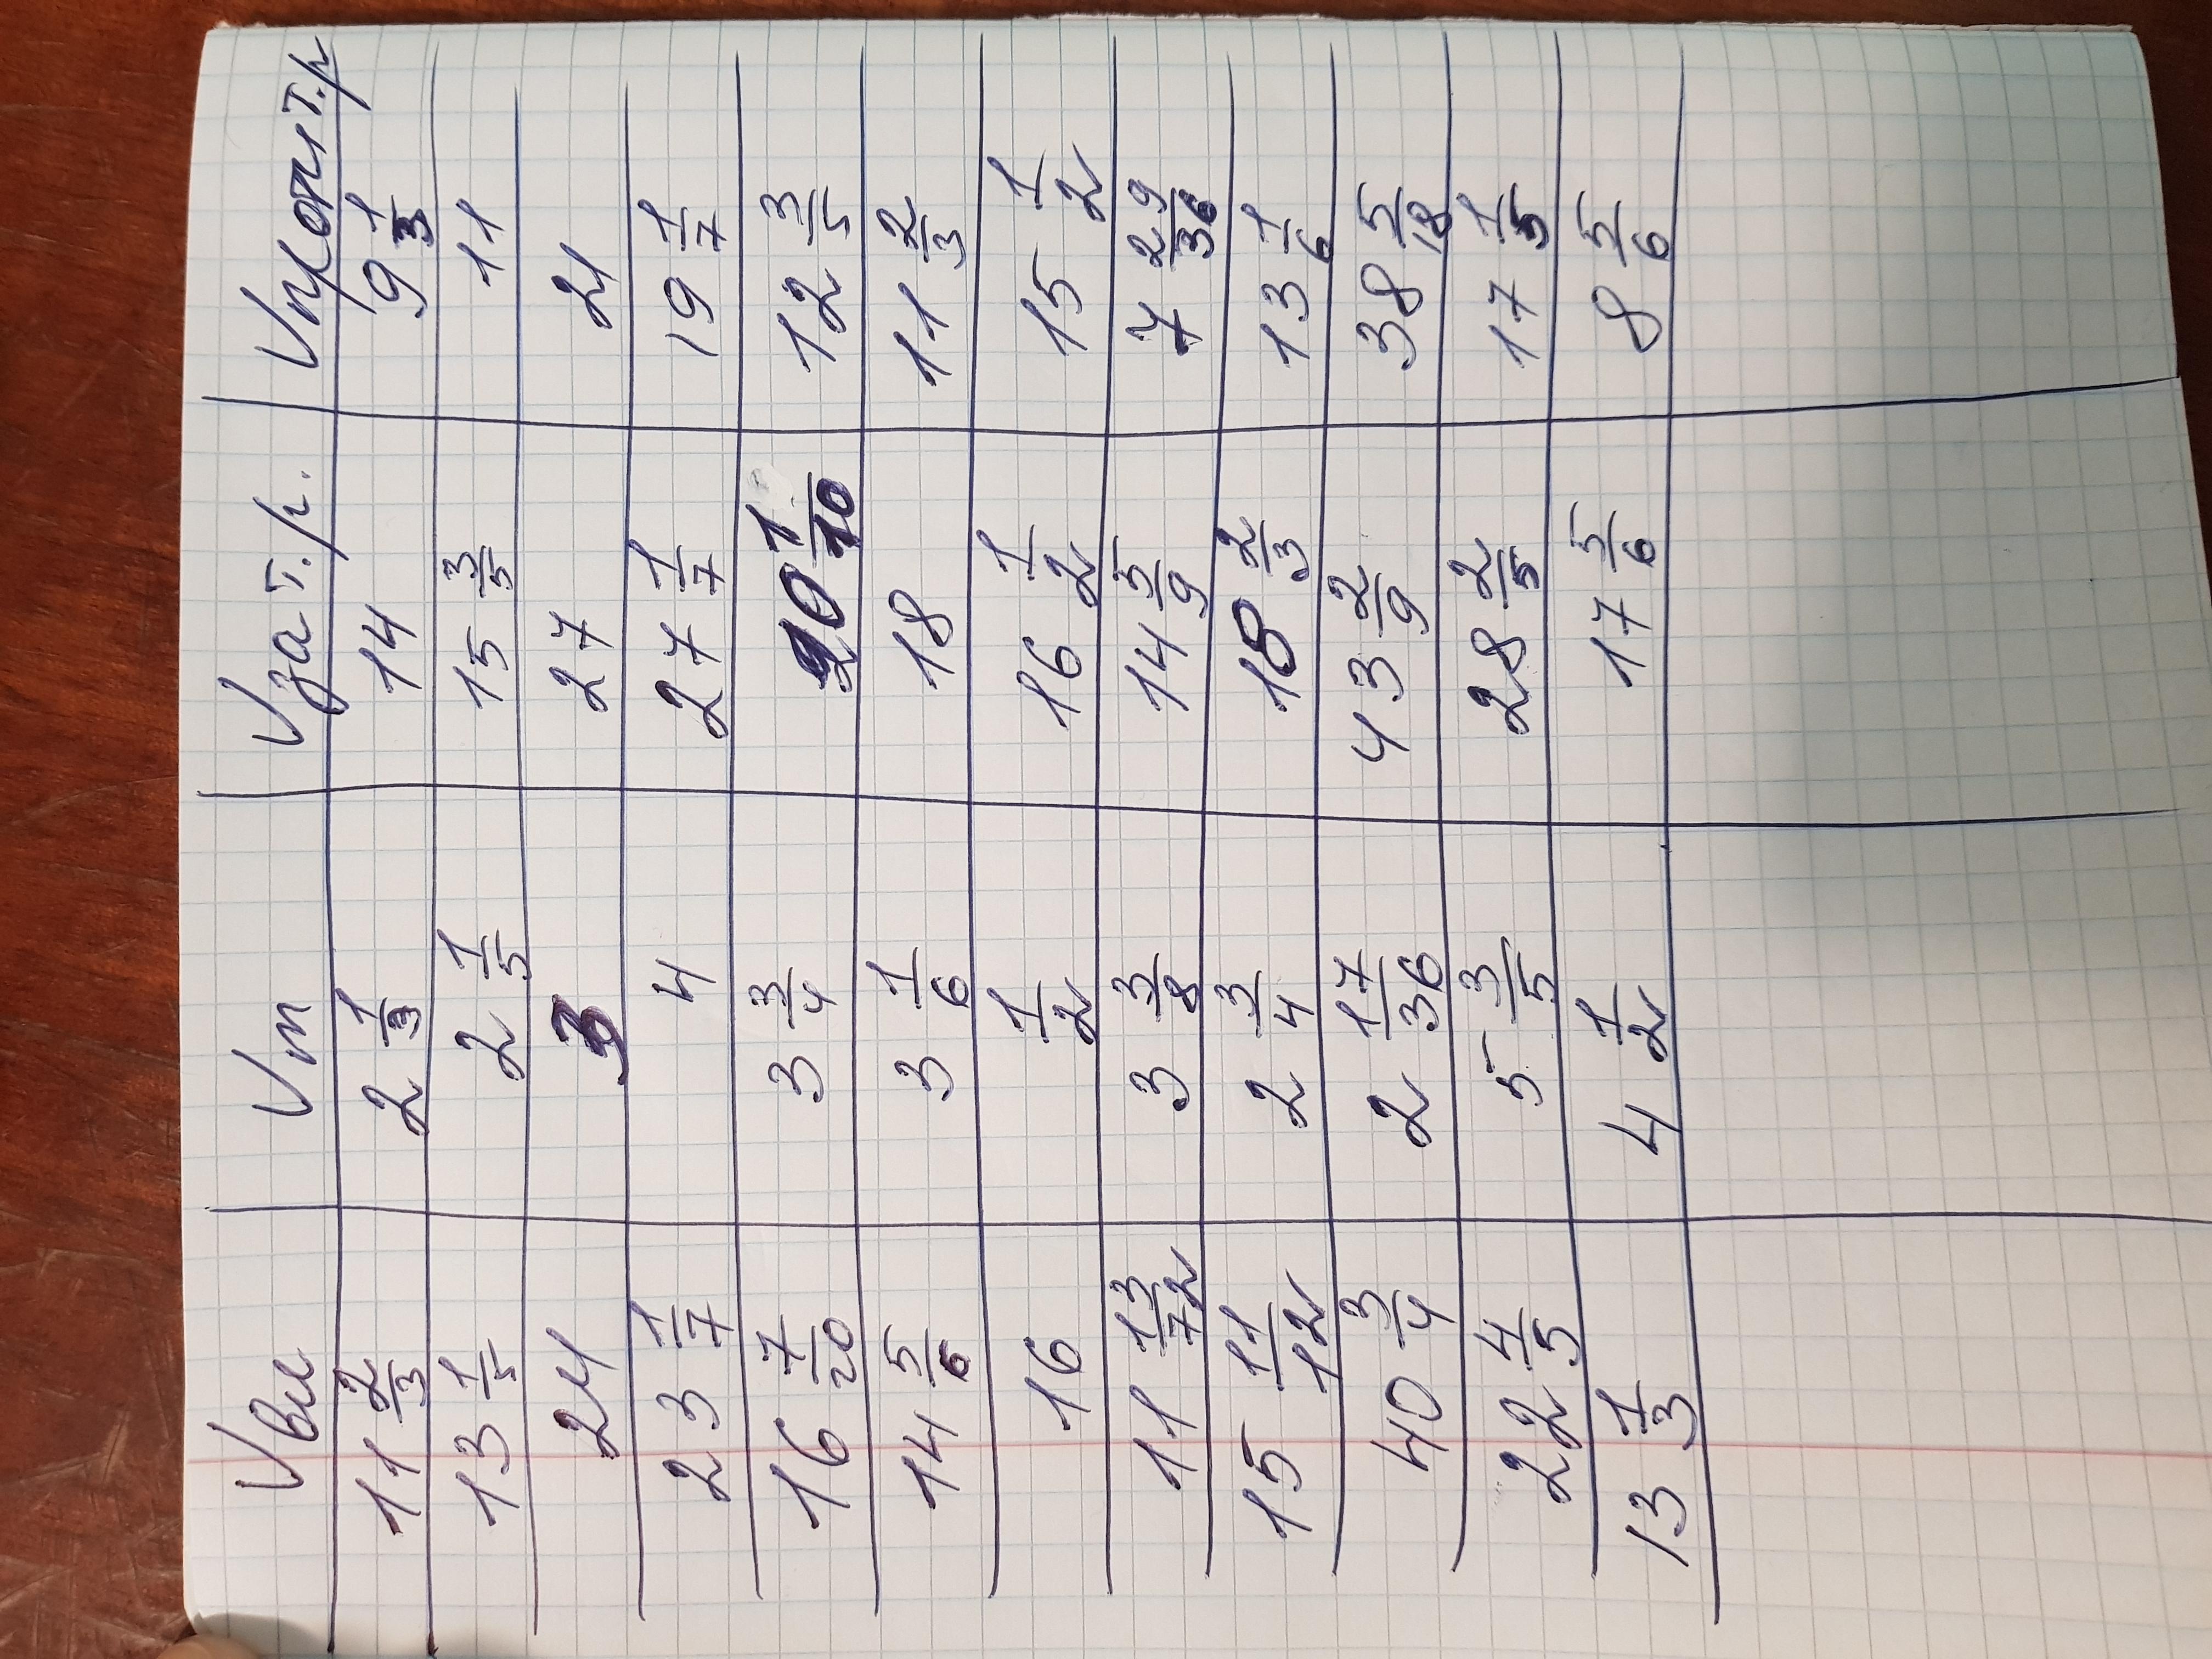 Vвл Vт Vза т.р. Vпрот т.р
11 2/3 2 1/3 14 9 1/3
13 1/5 2 1/5 15 3/5 11
24 3 27 21
23 1/7 4 27 1/7 19 1/7
16 7/20 3 3/4 20 1/10 12 3/5
14 5/6 3 1/6 18 11 2/3
16 1/2 16 1/2 15 1/2
11 13/72 3 3/8 14 5/9 7 29/36
15 11/12 2 3/4 18 2/3 13 1/6
40 3/4 2 17/36 43 2/9 38 5/18
22 4/5 5 3/5 28 2/5 17 1/5
13 1/3 4 1/2 17 5/6 8 5/6